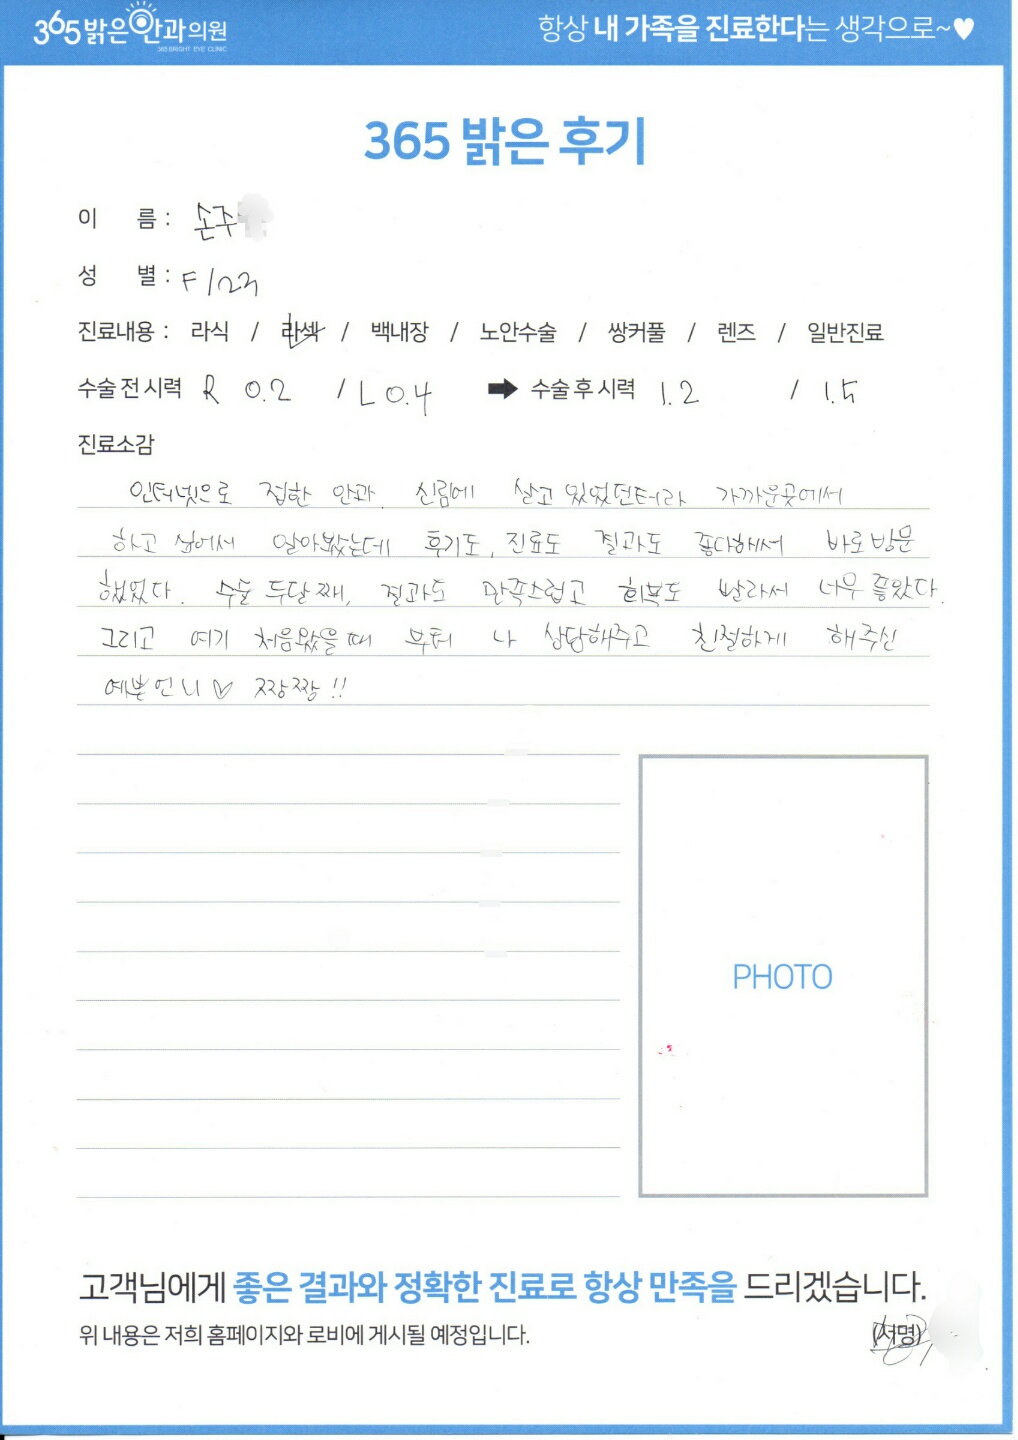 365밝은안과의원
365 BRIGHT EYE CLINIC
항상 내 가족을 진료한다는 생각으로~♥
365 밝은 후기
이 름 : 손주
성 별 : F/23
진료내용 : 라식 / 라섹 / 백내장 / 노안수술 / 쌍커풀 / 렌즈 / 일반진료
수술 전 시력 R 0.2 / L 0.4 ➡ 수술 후 시력 1.2 / 1.5
진료소감
인터넷으로 접한 안과. 신림에 살고 있었던터라 가까운곳에서
하고 싶어서 알아봤는데 후기도, 진료도 결과도 좋다해서 바로 방문
했었다. 수술 두달째, 결과도 만족스럽고 회복도 빨라서 너무 좋았다.
그리고 여기 처음왔을때 부터 나 상담해주고 친절하게 해주신
예쁜언니♡ 짱짱!!
PHOTO
고객님에게 좋은 결과와 정확한 진료로 항상 만족을 드리겠습니다.
위 내용은 저희 홈페이지와 로비에 게시될 예정입니다.
(서명)